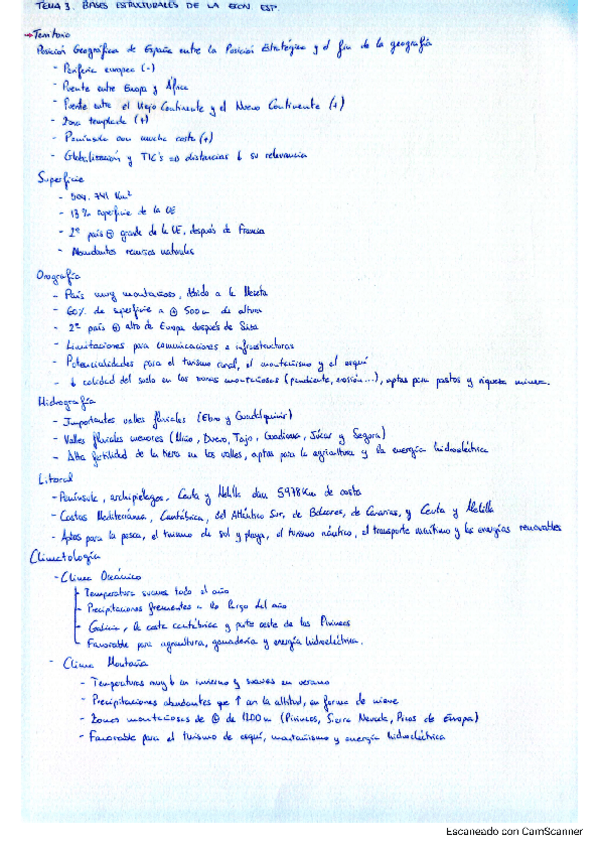 TEMA 3. BASES ESTRUCTURALES DE LA ECON. ESP.
→ Territorio
Posición Geográfica de España entre la Posición Estratégica y el fin de la geografía
- Periferia europea (-)
- Puente entre Europa y África
- Puente entre el Viejo Continente y el Nuevo Continente (+)
- Zona templada (+)
- Península con mucha costa (+)
- Globalización y TIC's => distancias ↓ su relevancia
Superficie
- 504.741 Km²
- 13% superficie de la UE
- 2º país ⊕ grande de la UE, después de Francia
- Abundantes recursos naturales
Orografía
- País muy montañoso, debido a la Meseta
- 60% de superficie a ⊕ 500m de altura
- 2º país ⊕ alto de Europa después de Suiza
- Limitaciones para comunicaciones e infraestructuras
- Potencialidades para el turismo rural, el montañismo y el esquí
- ↓ calidad del suelo en las zonas montañosas (pendiente, erosión...), aptas para pastos y riqueza minera.
Hidrografía
- Importantes valles fluviales (Ebro y Guadalquivir)
- Valles fluviales menores (Miño, Duero, Tajo, Guadiana, Júcar y Segura)
- Alta fertilidad de la tierra en los valles, aptas para la agricultura y la energía hidroeléctrica
Litoral
- Península, archipiélagos, Ceuta y Melilla dan 5978Km de costa
- Costas Mediterránea, Cantábrica, del Atlántico Sur, de Baleares, de Canarias, y Ceuta y Melilla
- Aptas para la pesca, el turismo de sol y playa, el turismo náutico, el transporte marítimo y las energías renovables
Climatología
- Clima Oceánico
- Temperatura suaves todo el año
- Precipitaciones frecuentes a lo largo del año
- Galicia, la costa cantábrica y parte oeste de los Pirineos
- Favorable para agricultura, ganadería y energía hidroeléctrica.
- Clima Montaña
- Temperaturas muy ↓ en invierno y suaves en verano
- Precipitaciones abundantes que ↑ con la altitud, en forma de nieve
- Zonas montañosas de ⊕ de 1200m (Pirineos, Sierra Nevada, Picos de Europa)
- Favorable para el turismo de esquí, montañismo y energía hidroeléctrica
Escaneado con CamScanner